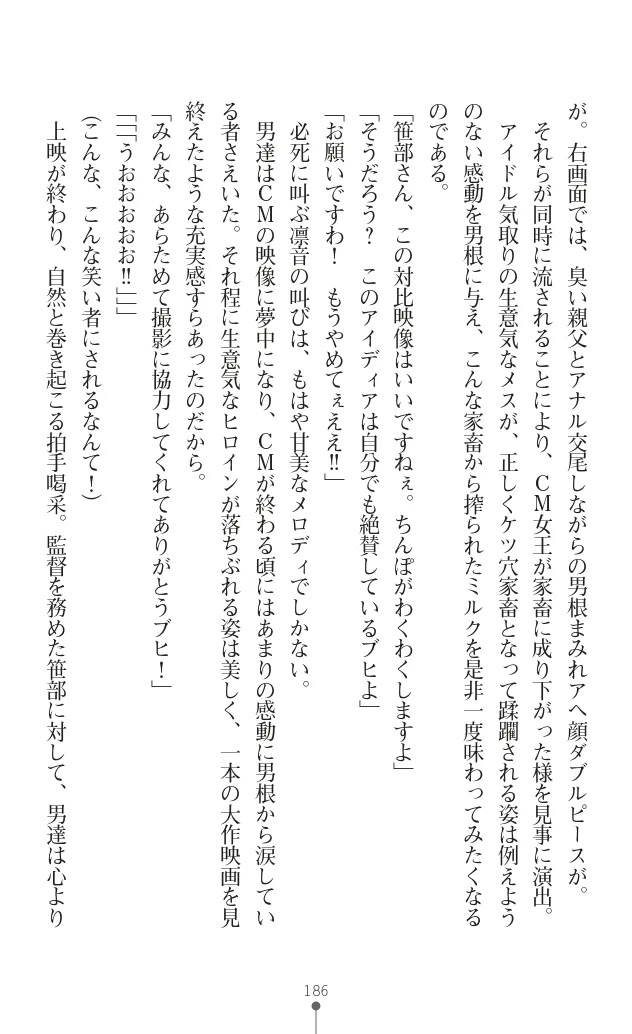 が。右画面では、臭い親父とアナル交尾しながらの男根まみれアヘ顔ダブルピースが。
　それらが同時に流されることにより、ＣＭ女王が家畜に成り下がった様を見事に演出。
　アイドル気取りの生意気なメスが、正しくケツ穴家畜となって蹂躙される姿は例えよう
のない感動を男根に与え、こんな家畜から搾られたミルクを是非一度味わってみたくなる
のである。
「笹部さん、この対比映像はいいですねぇ。ちんぽがわくわくしますよ」
「そうだろう？　このアイディアは自分でも絶賛しているブヒよ」
「お願いですわ！　もうやめてぇええ‼」
　必死に叫ぶ凛音の叫びは、もはや甘美なメロディでしかない。
　男達はＣＭの映像に夢中になり、ＣＭが終わる頃にはあまりの感動に男根から涙してい
る者さえいた。それ程に生意気なヒロインが落ちぶれる姿は美しく、一本の大作映画を見
終えたような充実感すらあったのだから。
「みんな、あらためて撮影に協力してくれてありがとうブヒ！」
「「「うおおおおお‼」」」
（こんな、こんな笑い者にされるなんて！）
　上映が終わり、自然と巻き起こる拍手喝采。監督を務めた笹部に対して、男達は心より
186